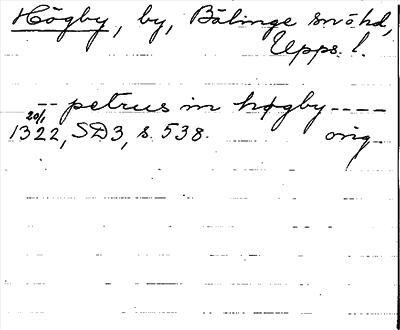 Högby, by, Bälinge sn o hd,
Upps. l.
-- petrus in høgby ----
20/1 1322, SD3, s. 538. orig.